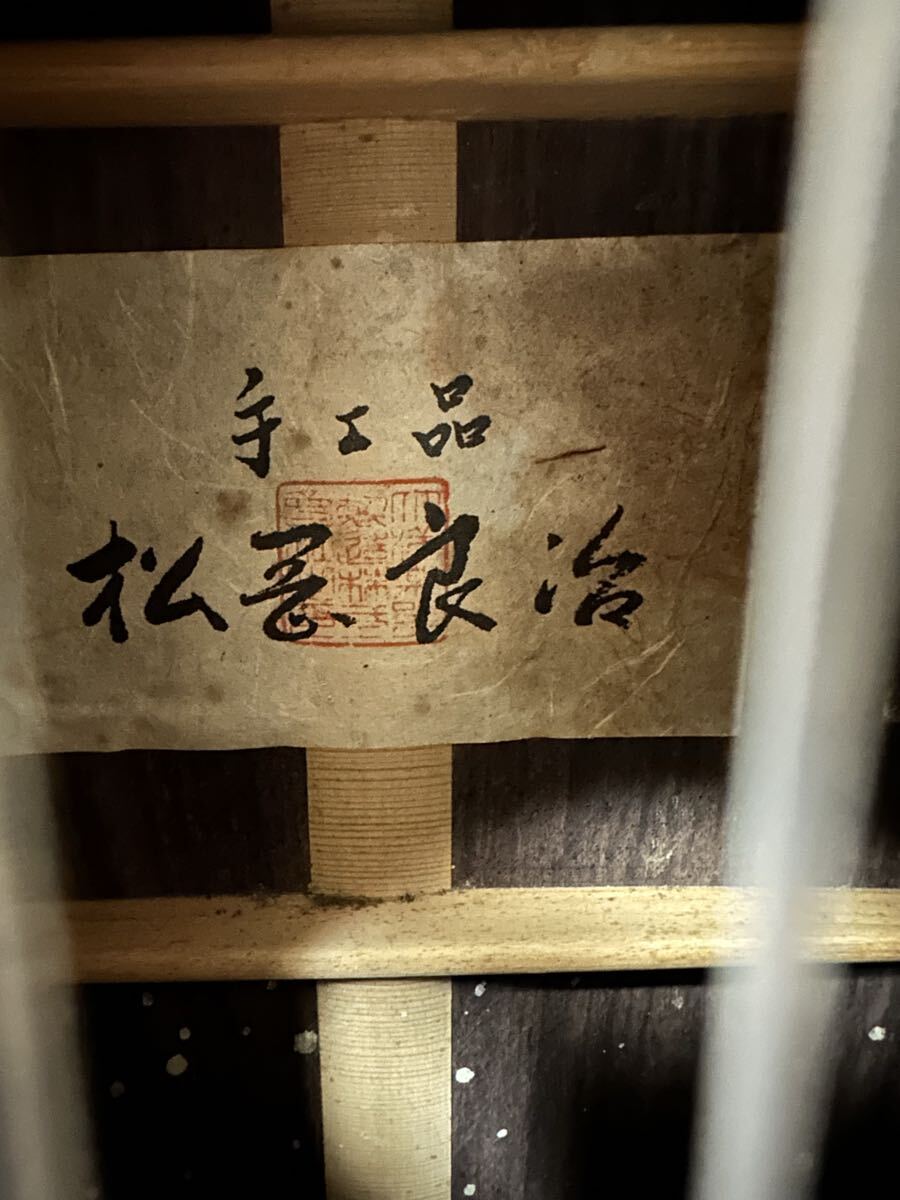 手工品
松岡良治